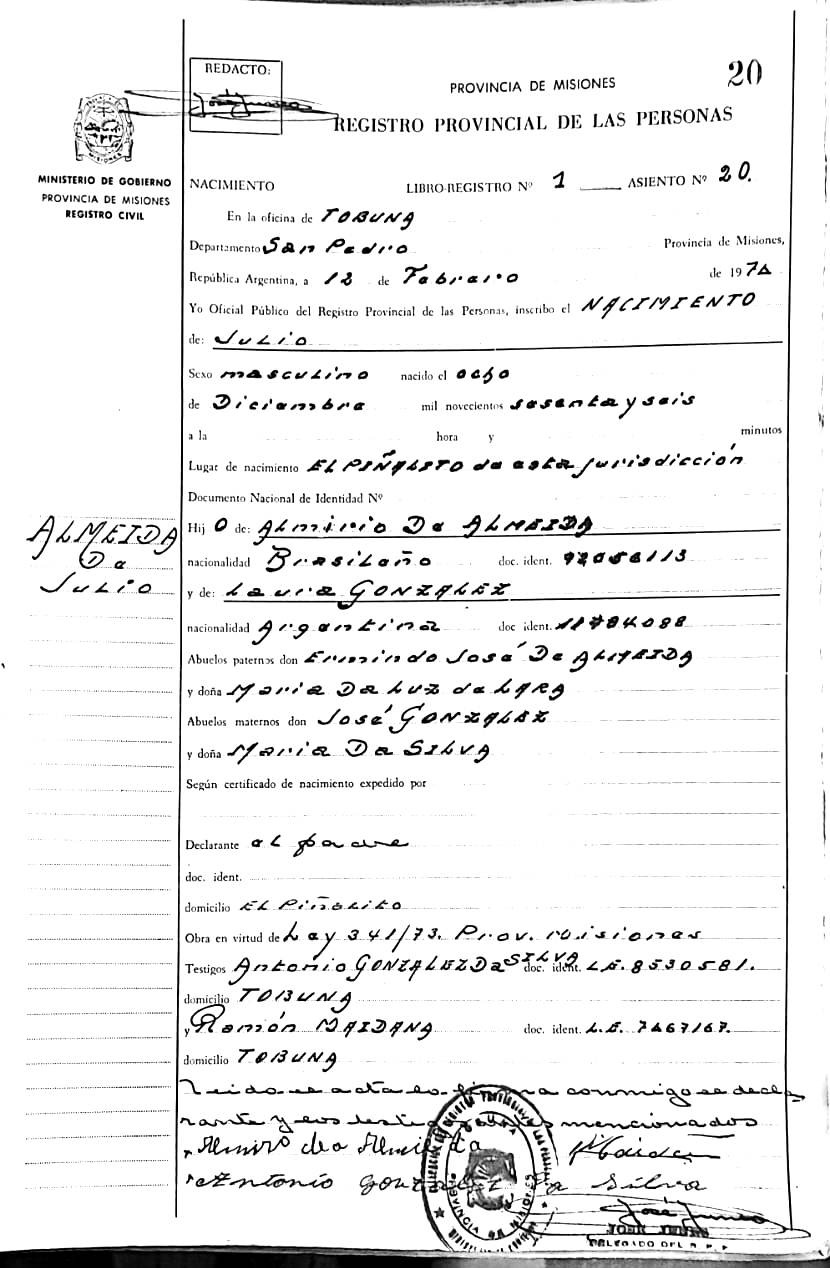 REDACTO:
20
PROVINCIA DE MISIONES
REGISTRO PROVINCIAL DE LAS PERSONAS
MINISTERIO DE GOBIERNO
PROVINCIA DE MISIONES
REGISTRO CIVIL
NACIMIENTO LIBRO-REGISTRO Nº 1 ASIENTO Nº 20.
En la oficina de TOBUNA
Departamento San Pedro Provincia de Misiones,
República Argentina, a 12 de Febrero de 1974
Yo Oficial Público del Registro Provincial de las Personas, inscribo el NACIMIENTO
de: JULIO
Sexo masculino nacido el ocho
de Diciembre mil novecientos sesenta y seis
a la hora y minutos
Lugar de nacimiento EL PIÑALITO de esta jurisdicción
Documento Nacional de Identidad Nº
ALMEIDA
De
JULIO
Hij O de: Almirio De ALMEIDA
nacionalidad Brasileño doc. ident. 92056113
y de: Laura GONZALEZ
nacionalidad Argentina doc ident. 11784088
Abuelos paternos don Ermindo José De ALMEIDA
y doña Maria Da Luz de LARA
Abuelos maternos don José GONZALEZ
y doña Maria Da SILVA
Según certificado de nacimiento expedido por
Declarante el padre
doc. ident.
domicilio EL Piñalito
Obra en virtud de Ley 341/73. Prov. Misiones
Testigos Antonio GONZALEZ Da SILVA doc. ident. L.E. 8530581.
domicilio TOBUNA
y Ramón MAIDANA doc. ident. L.E. 7467167.
domicilio TOBUNA
Leido el acta la firma conmigo el decla
rante y los testigos mencionados
Antonio Gonzalez Da Silva
PROVINCIA DE MISIONES
DELEGADO DEL R. P. P.